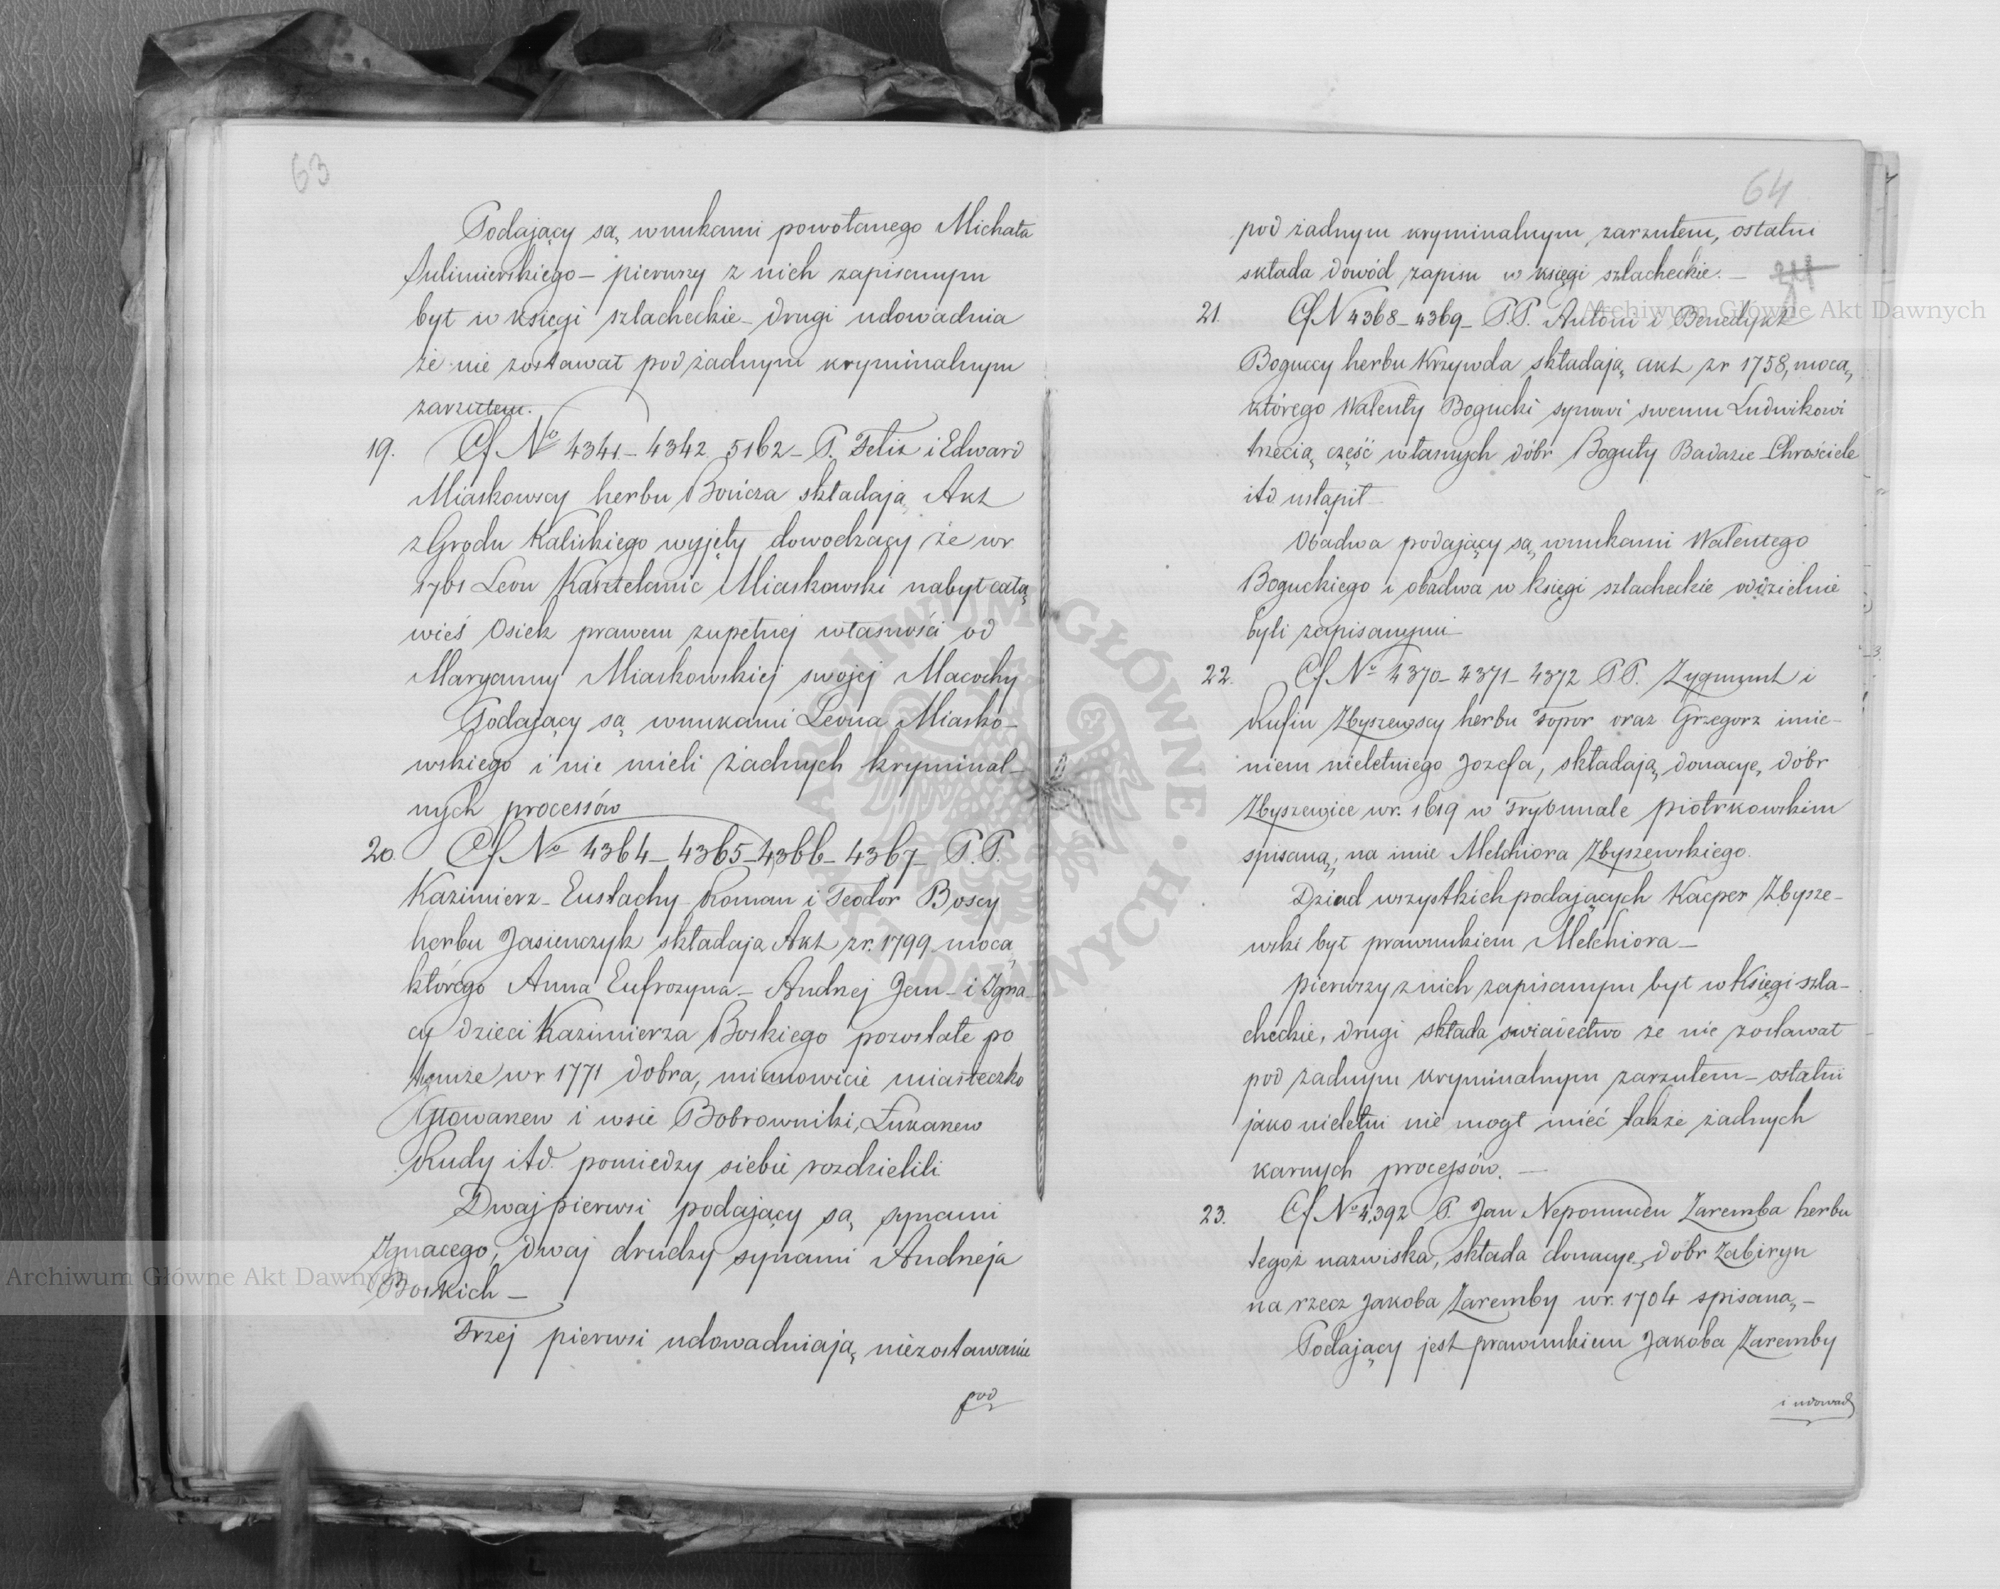 63
Podający są wnukami powołanego Michała
Sulimierskiego – pierwszy z nich zapisanym
był w księgi szlacheckie – drugi udowadnia
że nie zostawał pod żadnym kryminalnym
zarzutem.
19. Cf No 4341 – 4342 5162 – P. Felix i Edward
Miaskowscy herbu Bończa składają Akt
z Grodu Kaliskiego wyjęty dowodzący że w r
1761 Leon Kasztelanic Miaskowski nabył całą
wieś Osiek prawem zupełnej własności od
Maryanny Miaskowskiej swojej Macochy
Podający są wnukami Leona Miasko-
wskiego i nie mieli żadnych kryminal-
nych processów
20. Cf No 4364 – 4365 – 4366 – 4367 – P.P.
Kazimierz – Eustachy – Roman i Teodor Boscy
herbu Jasieńczyk składają Akt z r. 1799 mocą
którego Anna Eufrozyna – Andrzej Jan – i Igna-
cy dzieci Kazimierza Boskiego pozostałe po
tymże w r 1771 dobra, mianowicie miasteczko
i wsie Bobrowniki, Łukanew
Rudy itd. pomiedzy siebie rozdzielili
Dwaj pierwsi podający są synami
Ignacego, dwaj drudzy synami Andrzeja
Boskich –
Trzej pierwsi udowadniają niezostawanie
pod
64
pod żadnym kryminalnym zarzutem, ostatni
składa dowód zapisu w księgi szlacheckie. –
21. Cf N 4368 – 4369 – P.P. Antoni i Benedykt
Boguccy herbu Krzywda składają akt z r 1758, mocą,
którego Walenty Bogucki synowi swemu Ludwikowi
trzecią część własnych dóbr Boguty Badazie – Chrościele
itd ustąpił
Obadwa podający są wnukami Walentego
Boguckiego i obadwa w księgi szlacheckie oddzielnie
byli zapisanymi
22. Cf No 4370 – 4371 – 4372 P.P. Zygmunt i
Rufin Zbyszewscy herbu Topor oraz Grzegorz imie-
niem nieletniego Jozefa, składają donacyę dóbr
Zbyszewice w r. 1619 w Trybunale piotrkowskim
spisaną, na imie Melchiora Zbyszewskiego.
Dziad wszystkich podających Kacper Zbysze-
wski był prawnukiem Melchiora –
pierwszy z nich zapisanym był w Księgi szla-
checkie, drugi składa swiadectwo że nie zostawał
pod żadnym kryminalnym zarzutem – ostatni
jako nieletni nie mogł mieć także żadnych
karnych procesów. –
23. Cf No 4,392 P. Jan Nepomucen Zaremba herbu
tegoż nazwiska, składa donacyę dóbr Zabiryn
na rzecz Jakoba Zaremby w r. 1704 spisaną –
Podający jest prawnukiem Jakoba Zaremby
i udowad
Archiwum Główne Akt Dawnych
Archiwum Główne Akt Dawnych
ARCHIWUM GŁÓWNE AKT DAWNYCH